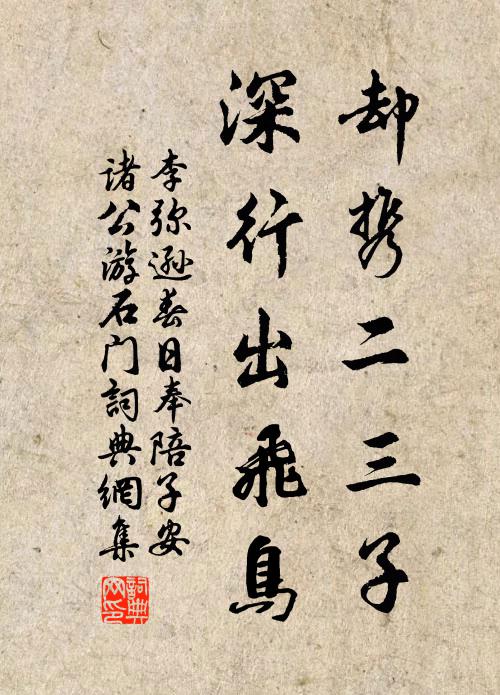 却携二三子
深行出飛鳥
李弥遜春日奉陪子安
諸公游石門詞典網集
詞典網印